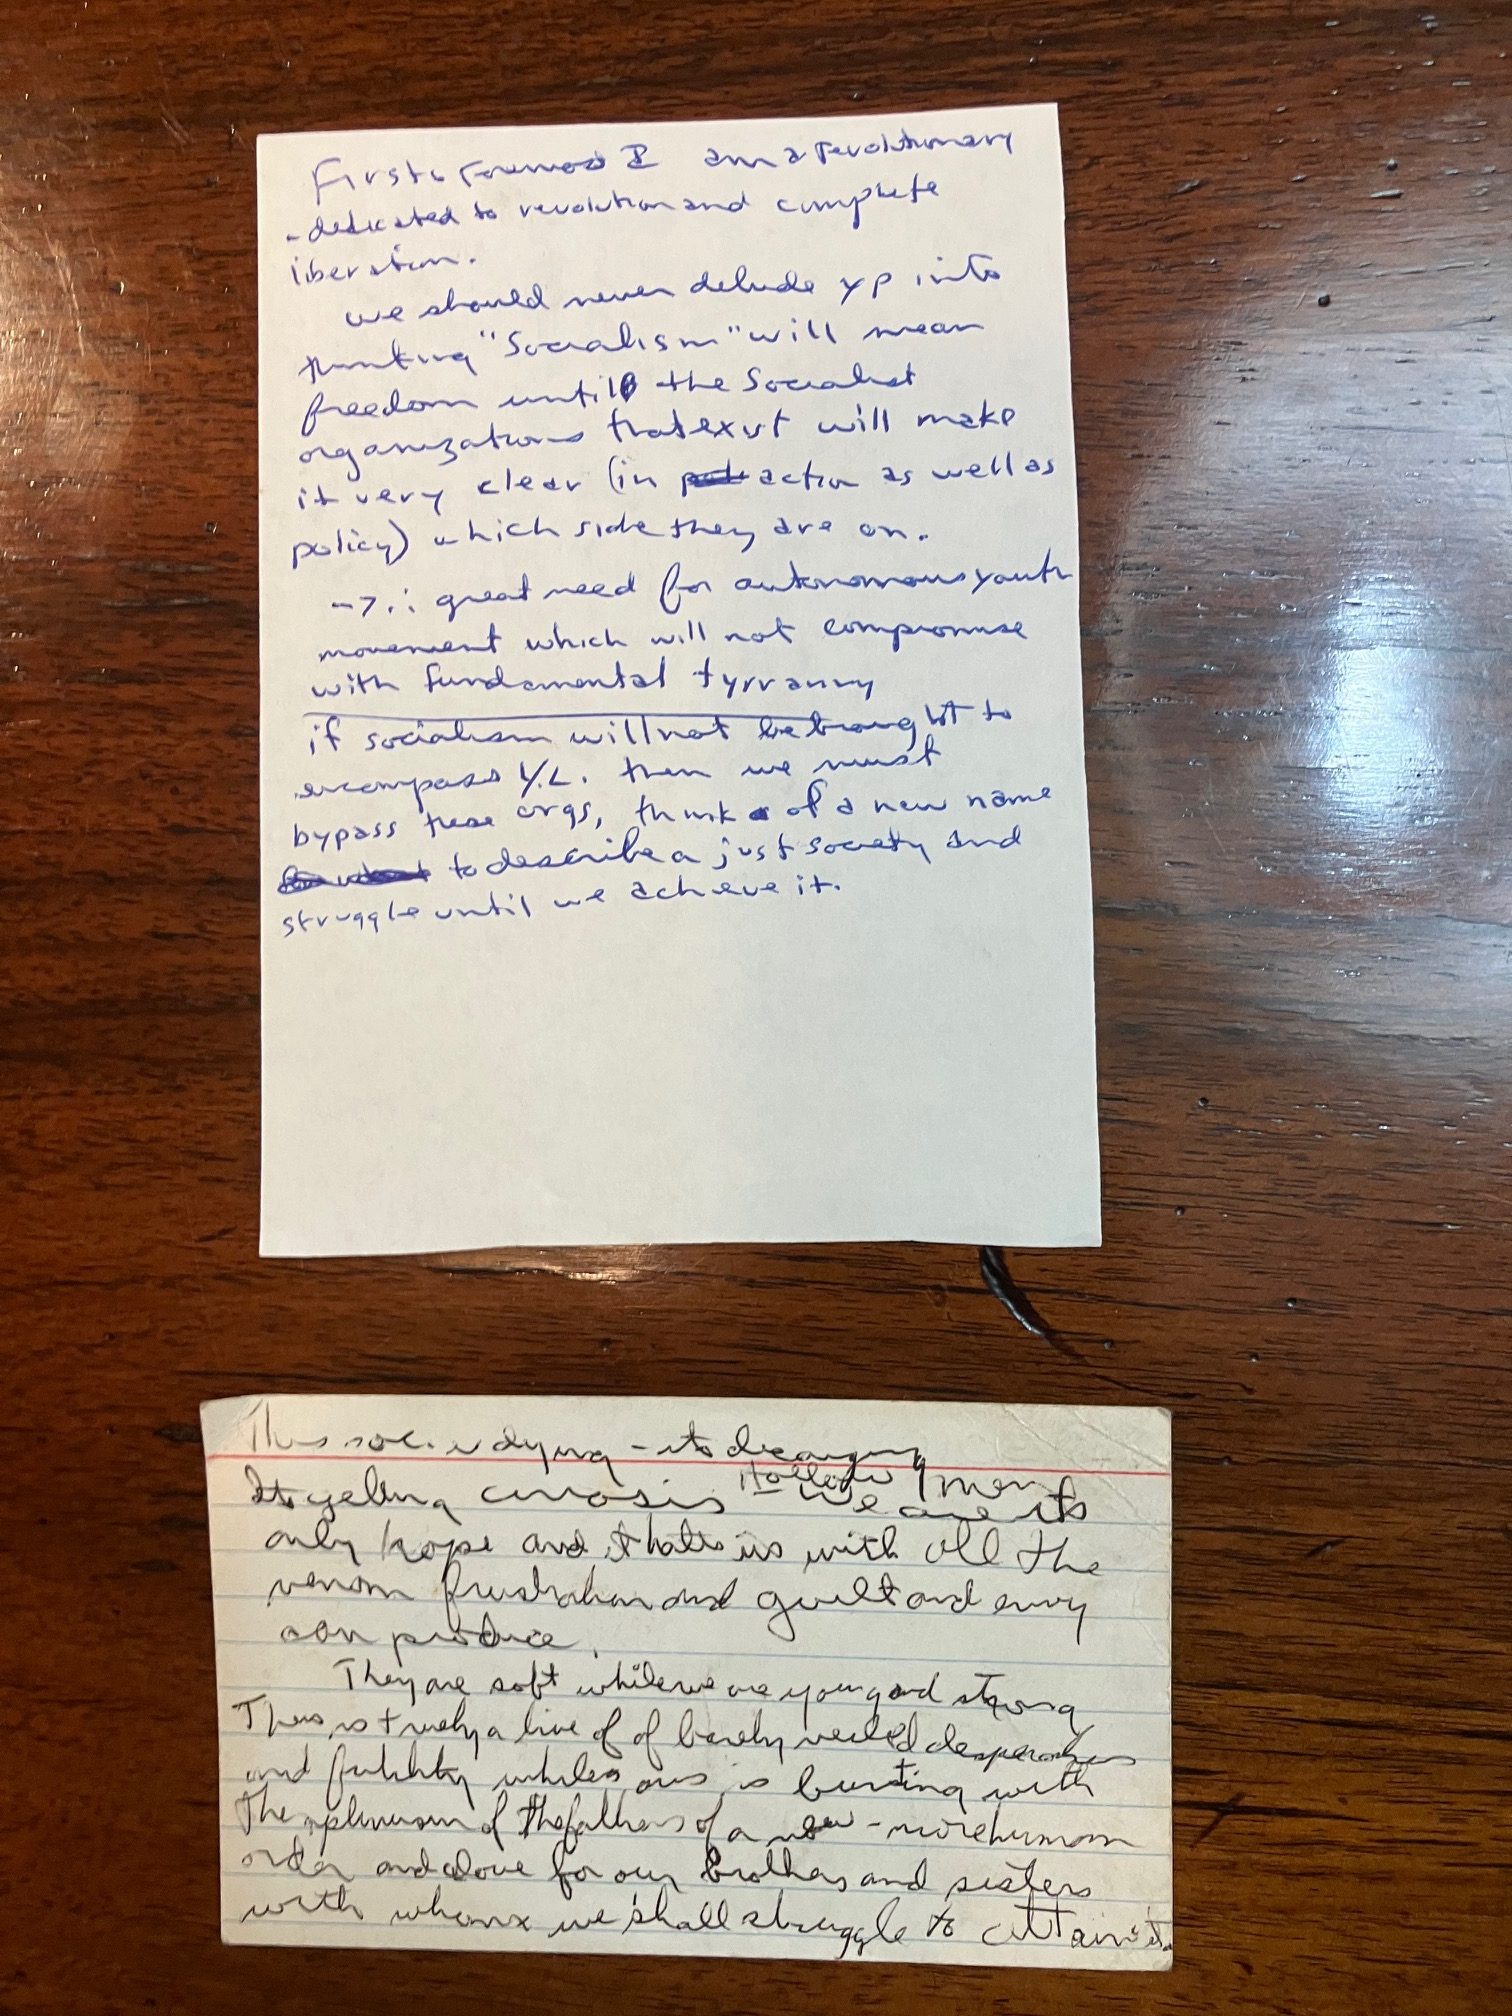 First & Foremost I am a revolutionary
- dedicated to revolution and complete
liberation.
we should never delude yp into
thinking "Socialism" will mean
freedom until the Socialist
organizations that exist will make
it very clear (in action as well as
policy) which side they are on.
-> ∴ great need for autonomous youth
movement which will not compromise
with fundamental tyrranny
if socialism will not be brought to
encompass Y.L. then we must
bypass these orgs, think of a new name
to describe a just society and
struggle until we achieve it.
This soc. is dying - its decaying
Hollow men
Its yelling - We are its
only hope and it hates us with all the
venom frustration and guilt and envy
can produce.
They are soft while we are young and strong
Theirs is truely a live of of barely veiled desperation
and futility while ours is bursting with
the optimism of the fathers of a new - more human
order and a love for our brothers and sisters
with whom we shall struggle to attain it.